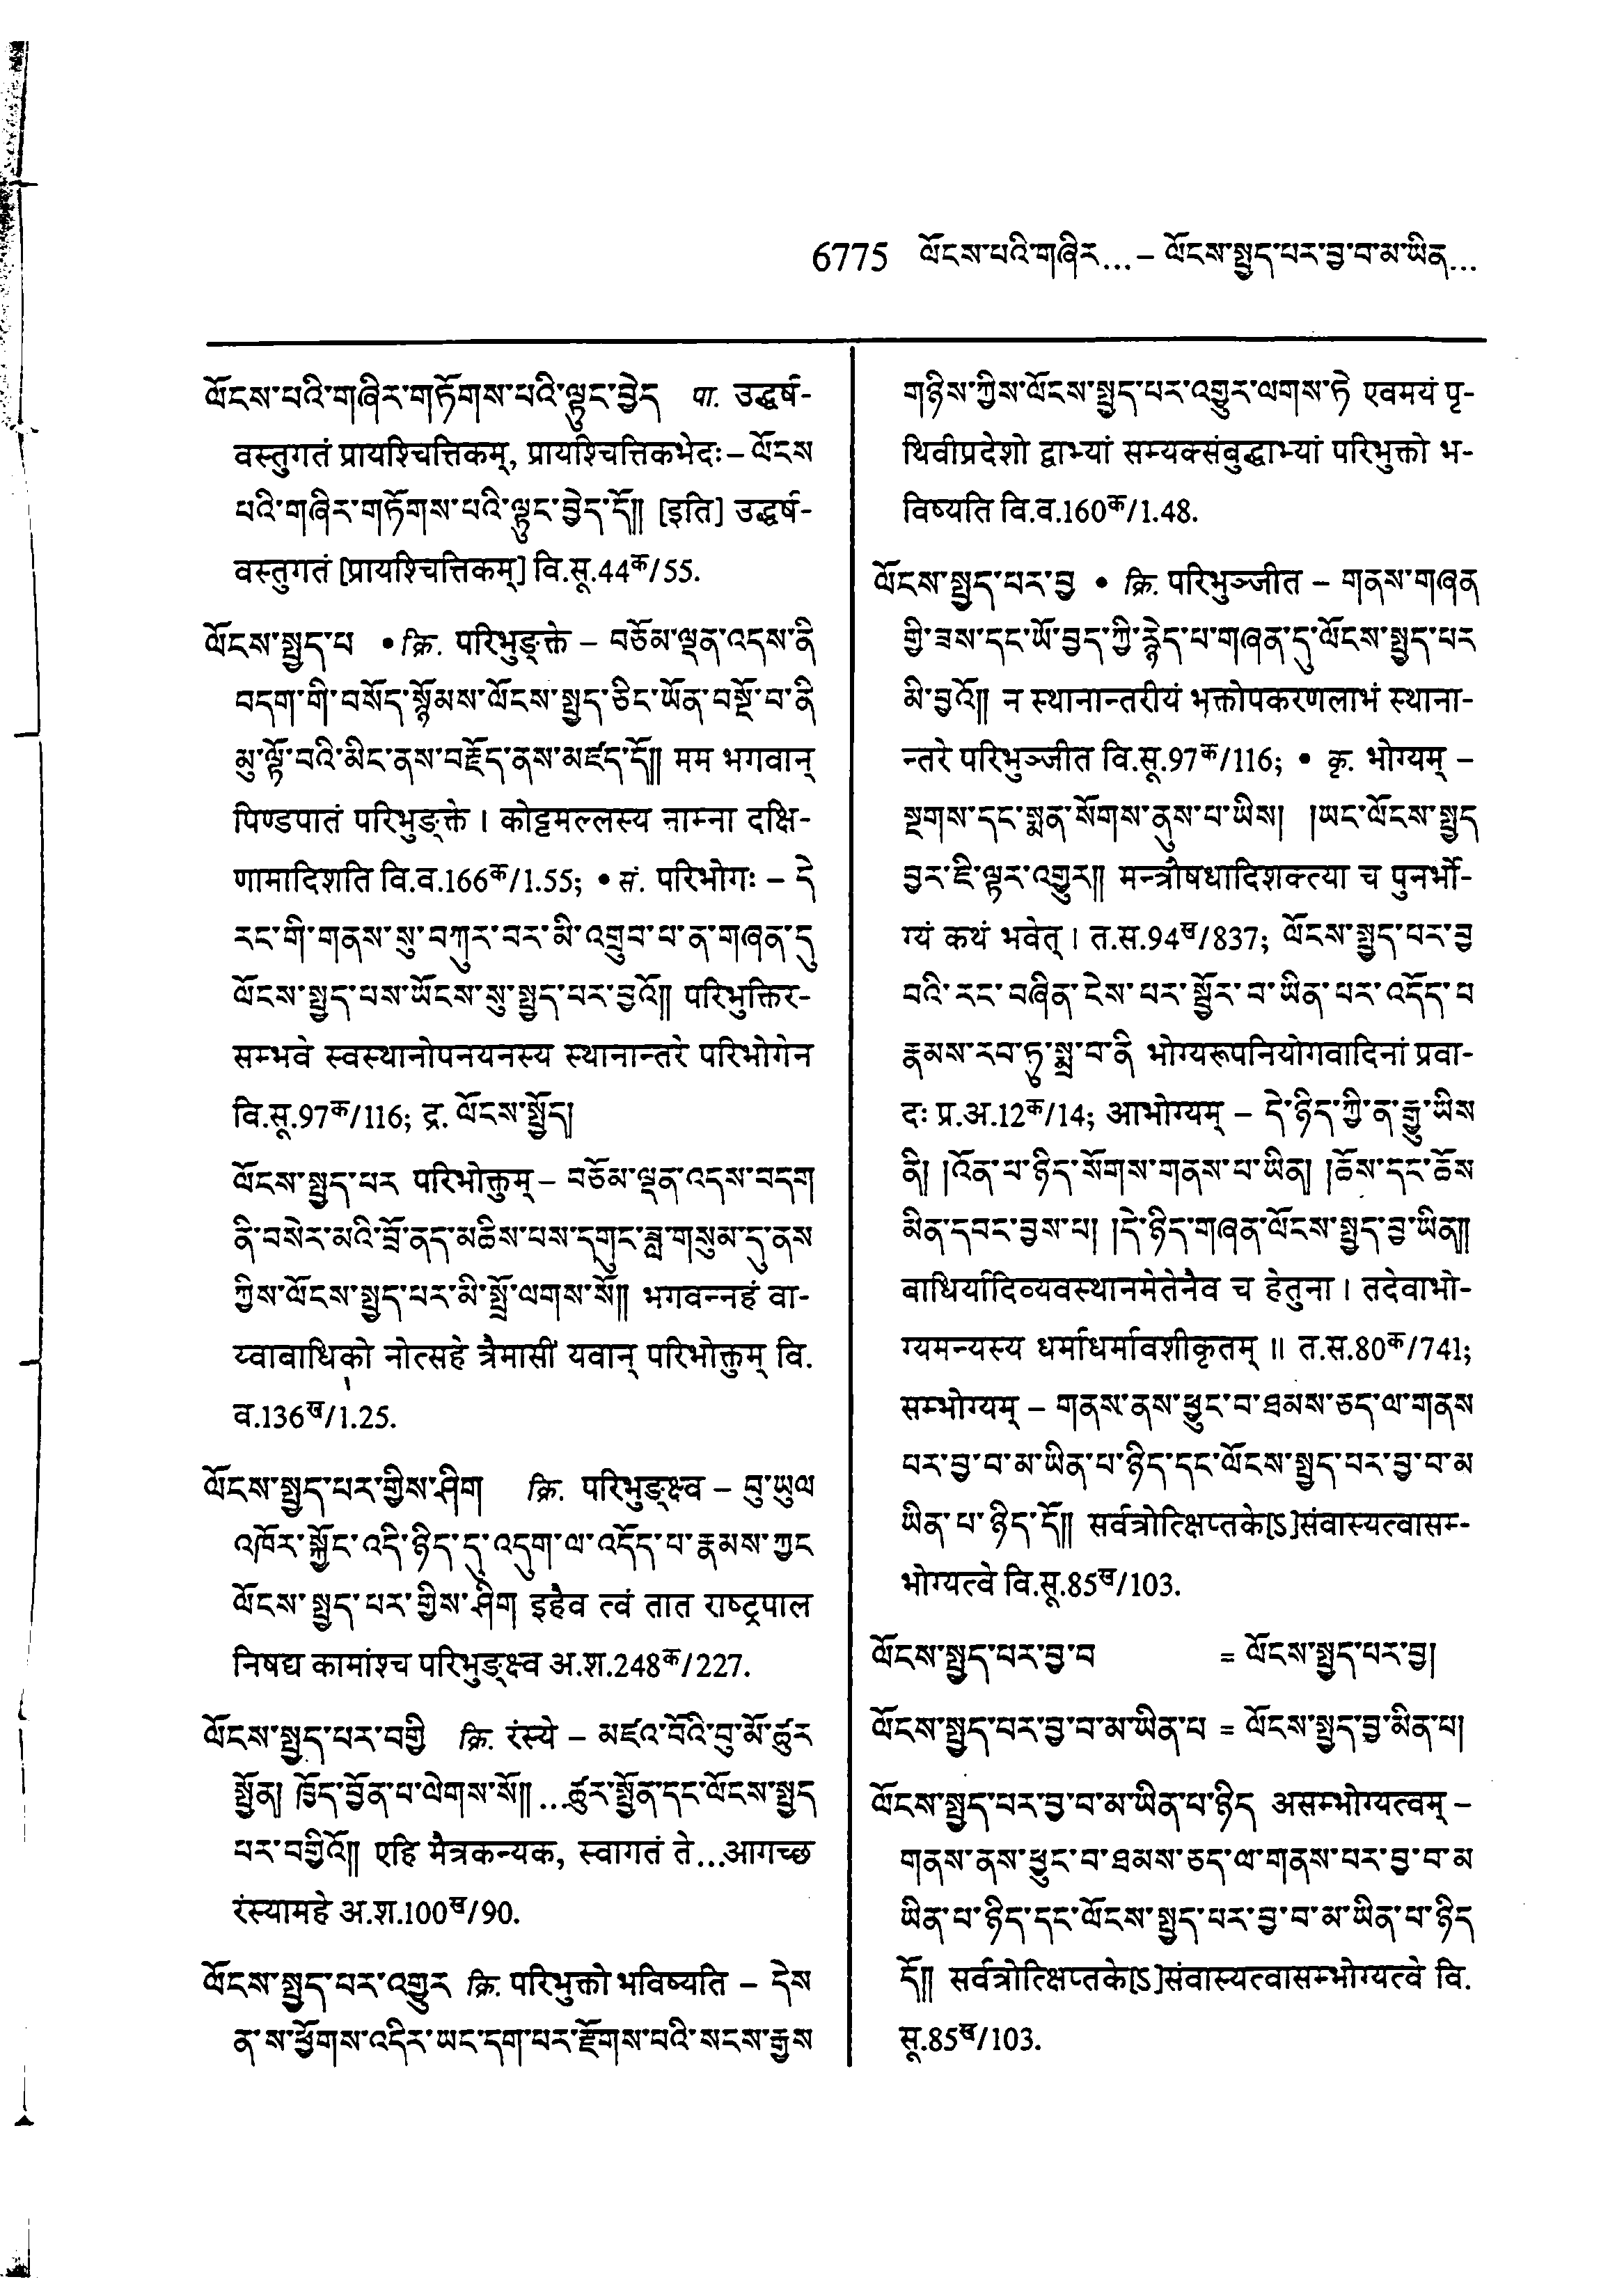 6775 ལོངས་པའི་གཞིར...– ལོངས་སྤྱད་པར་བྱ་བ་མ་ཡིན...
ལོངས་པའི་གཞིར་གཏོགས་པའི་ལྟུང་བྱེད पा. उद्धर्ष-
वस्तुगतं प्रायश्चित्तिकम्, प्रायश्चित्तिकभेदः – ལོངས
པའི་གཞིར་གཏོགས་པའི་ལྟུང་བྱེད་དོ༎ [इति] उद्धर्ष-
वस्तुगतं [प्रायश्चित्तिकम्] वि.सू.44क/55.
ལོངས་སྤྱད་པ • क्रि. परिभुङ्क्ते – བཅོམ་ལྡན་འདས་ནི
བདག་གི་བསོད་སྙོམས་ལོངས་སྤྱད་ཅིང་ཡོན་བསྔོ་བ་ནི
མུ་ལྟོ་བའི་མིང་ནས་བརྗོད་ནས་མཛད་དོ༎ मम भगवान्
पिण्डपातं परिभुङ्क्ते । कोट्टमल्लस्य नाम्ना दक्षि-
णामादिशति वि.व.166क/1.55; • सं. परिभोगः – དེ
རང་གི་གནས་སུ་བཀུར་བར་མི་འགྲུབ་པ་ན་གཞན་དུ
ལོངས་སྤྱད་པས་ཡོངས་སུ་སྤྱད་པར་བྱའོ༎ परिभुक्तिर-
सम्भवे स्वस्थानोपनयनस्य स्थानान्तरे परिभोगेन
वि.सू.97क/116; द्र. ལོངས་སྤྱོད།
ལོངས་སྤྱད་པར परिभोक्तुम् – བཅོམ་ལྡན་འདས་བདག
ནི་བསེར་མའི་བྲོ་ནད་མཆིས་པས་དགུང་ཟླ་གསུམ་དུ་ནས
ཀྱིས་ལོངས་སྤྱད་པར་མི་སྤྲོ་ལགས་སོ༎ भगवन्नहं वा-
य्वाबाधिको नोत्सहे त्रैमासीं यवान् परिभोक्तुम् वि.
व.136ख/1.25.
ལོངས་སྤྱད་པར་གྱིས་ཤིག क्रि. परिभुङ्क्ष्व – བུ་ཡུལ
འཁོར་སྐྱོང་འདི་ཉིད་དུ་འདུག་ལ་འདོད་པ་རྣམས་ཀྱང
ལོངས་སྤྱད་པར་གྱིས་ཤིག इहैव त्वं तात राष्ट्रपाल
निषद्य कामांश्च परिभुङ्क्ष्व अ.श.248क/227.
ལོངས་སྤྱད་པར་བགྱི क्रि. रंस्ये – མཛའ་བོའི་བུ་མོ་ཚུར
སྤྱོན། ཁྱོད་བྱོན་པ་ལེགས་སོ༎ ...ཚུར་སྤྱོན་དང་ལོངས་སྤྱད
པར་བགྱིའོ༎ एहि मैत्रकन्यक, स्वागतं ते...आगच्छ
रंस्यामहे अ.श.100ख/90.
ལོངས་སྤྱད་པར་འགྱུར क्रि. परिभुक्तो भविष्यति – དེས
ན་ས་ཕྱོགས་འདིར་ཡང་དག་པར་རྫོགས་པའི་སངས་རྒྱས
གཉིས་ཀྱིས་ལོངས་སྤྱད་པར་འགྱུར་ལགས་ཏེ एवमयं पृ-
थिवीप्रदेशो द्वाभ्यां सम्यक्संबुद्धाभ्यां परिभुक्तो भ-
विष्यति वि.व.160क/1.48.
ལོངས་སྤྱད་པར་བྱ • क्रि. परिभुञ्जीत – གནས་གཞན
གྱི་ཟས་དང་ཡོ་བྱད་ཀྱི་རྙེད་པ་གཞན་དུ་ལོངས་སྤྱད་པར
མི་བྱའོ༎ न स्थानान्तरीयं भक्तोपकरणलाभं स्थाना-
न्तरे परिभुञ्जीत वि.सू.97क/116; • कृ. भोग्यम् –
སྔགས་དང་སྨན་སོགས་ནུས་པ་ཡིས། །ཡང་ལོངས་སྤྱད
བྱར་ཇི་ལྟར་འགྱུར༎ मन्त्रौषधादिशक्त्या च पुनर्भो-
ग्यं कथं भवेत् । त.स.94ख/837; ལོངས་སྤྱད་པར་བྱ
བའི་རང་བཞིན་ངེས་པར་སྦྱོར་བ་ཡིན་པར་འདོད་པ
རྣམས་རབ་ཏུ་སྨྲ་བ་ནི भोग्यरूपनियोगवादिनां प्रवा-
दः प्र.अ.12क/14; आभोग्यम् – དེ་ཉིད་ཀྱི་ན་རྒྱུ་ཡིས
ནི། །འོན་པ་ཉིད་སོགས་གནས་པ་ཡིན། །ཆོས་དང་ཆོས
མིན་དབང་བྱས་པ། །དེ་ཉིད་གཞན་ལོངས་སྤྱད་བྱ་ཡིན༎
बाधिर्यादिव्यवस्थानमेतेनैव च हेतुना । तदेवाभो-
ग्यमन्यस्य धर्माधर्मावशीकृतम् ॥ त.स.80क/741;
सम्भोग्यम् – གནས་ནས་ཕྱུང་བ་ཐམས་ཅད་ལ་གནས
པར་བྱ་བ་མ་ཡིན་པ་ཉིད་དང་ལོངས་སྤྱད་པར་བྱ་བ་མ
ཡིན་པ་ཉིད་དོ༎ सर्वत्रोत्क्षिप्तके[ऽ]संवास्यत्वासम-
भोग्यत्वे वि.सू.85ख/103.
ལོངས་སྤྱད་པར་བྱ་བ = ལོངས་སྤྱད་པར་བྱ།
ལོངས་སྤྱད་པར་བྱ་བ་མ་ཡིན་པ = ལོངས་སྤྱད་བྱ་མིན་པ།
ལོངས་སྤྱད་པར་བྱ་བ་མ་ཡིན་པ་ཉིད असम्भोग्यत्वम् –
གནས་ནས་ཕྱུང་བ་ཐམས་ཅད་ལ་གནས་པར་བྱ་བ་མ
ཡིན་པ་ཉིད་དང་ལོངས་སྤྱད་པར་བྱ་བ་མ་ཡིན་པ་ཉིད
དོ༎ सर्वत्रोत्क्षिप्तके[ऽ]संवास्यत्वासम्भोग्यत्वे वि.
सू.85ख/103.